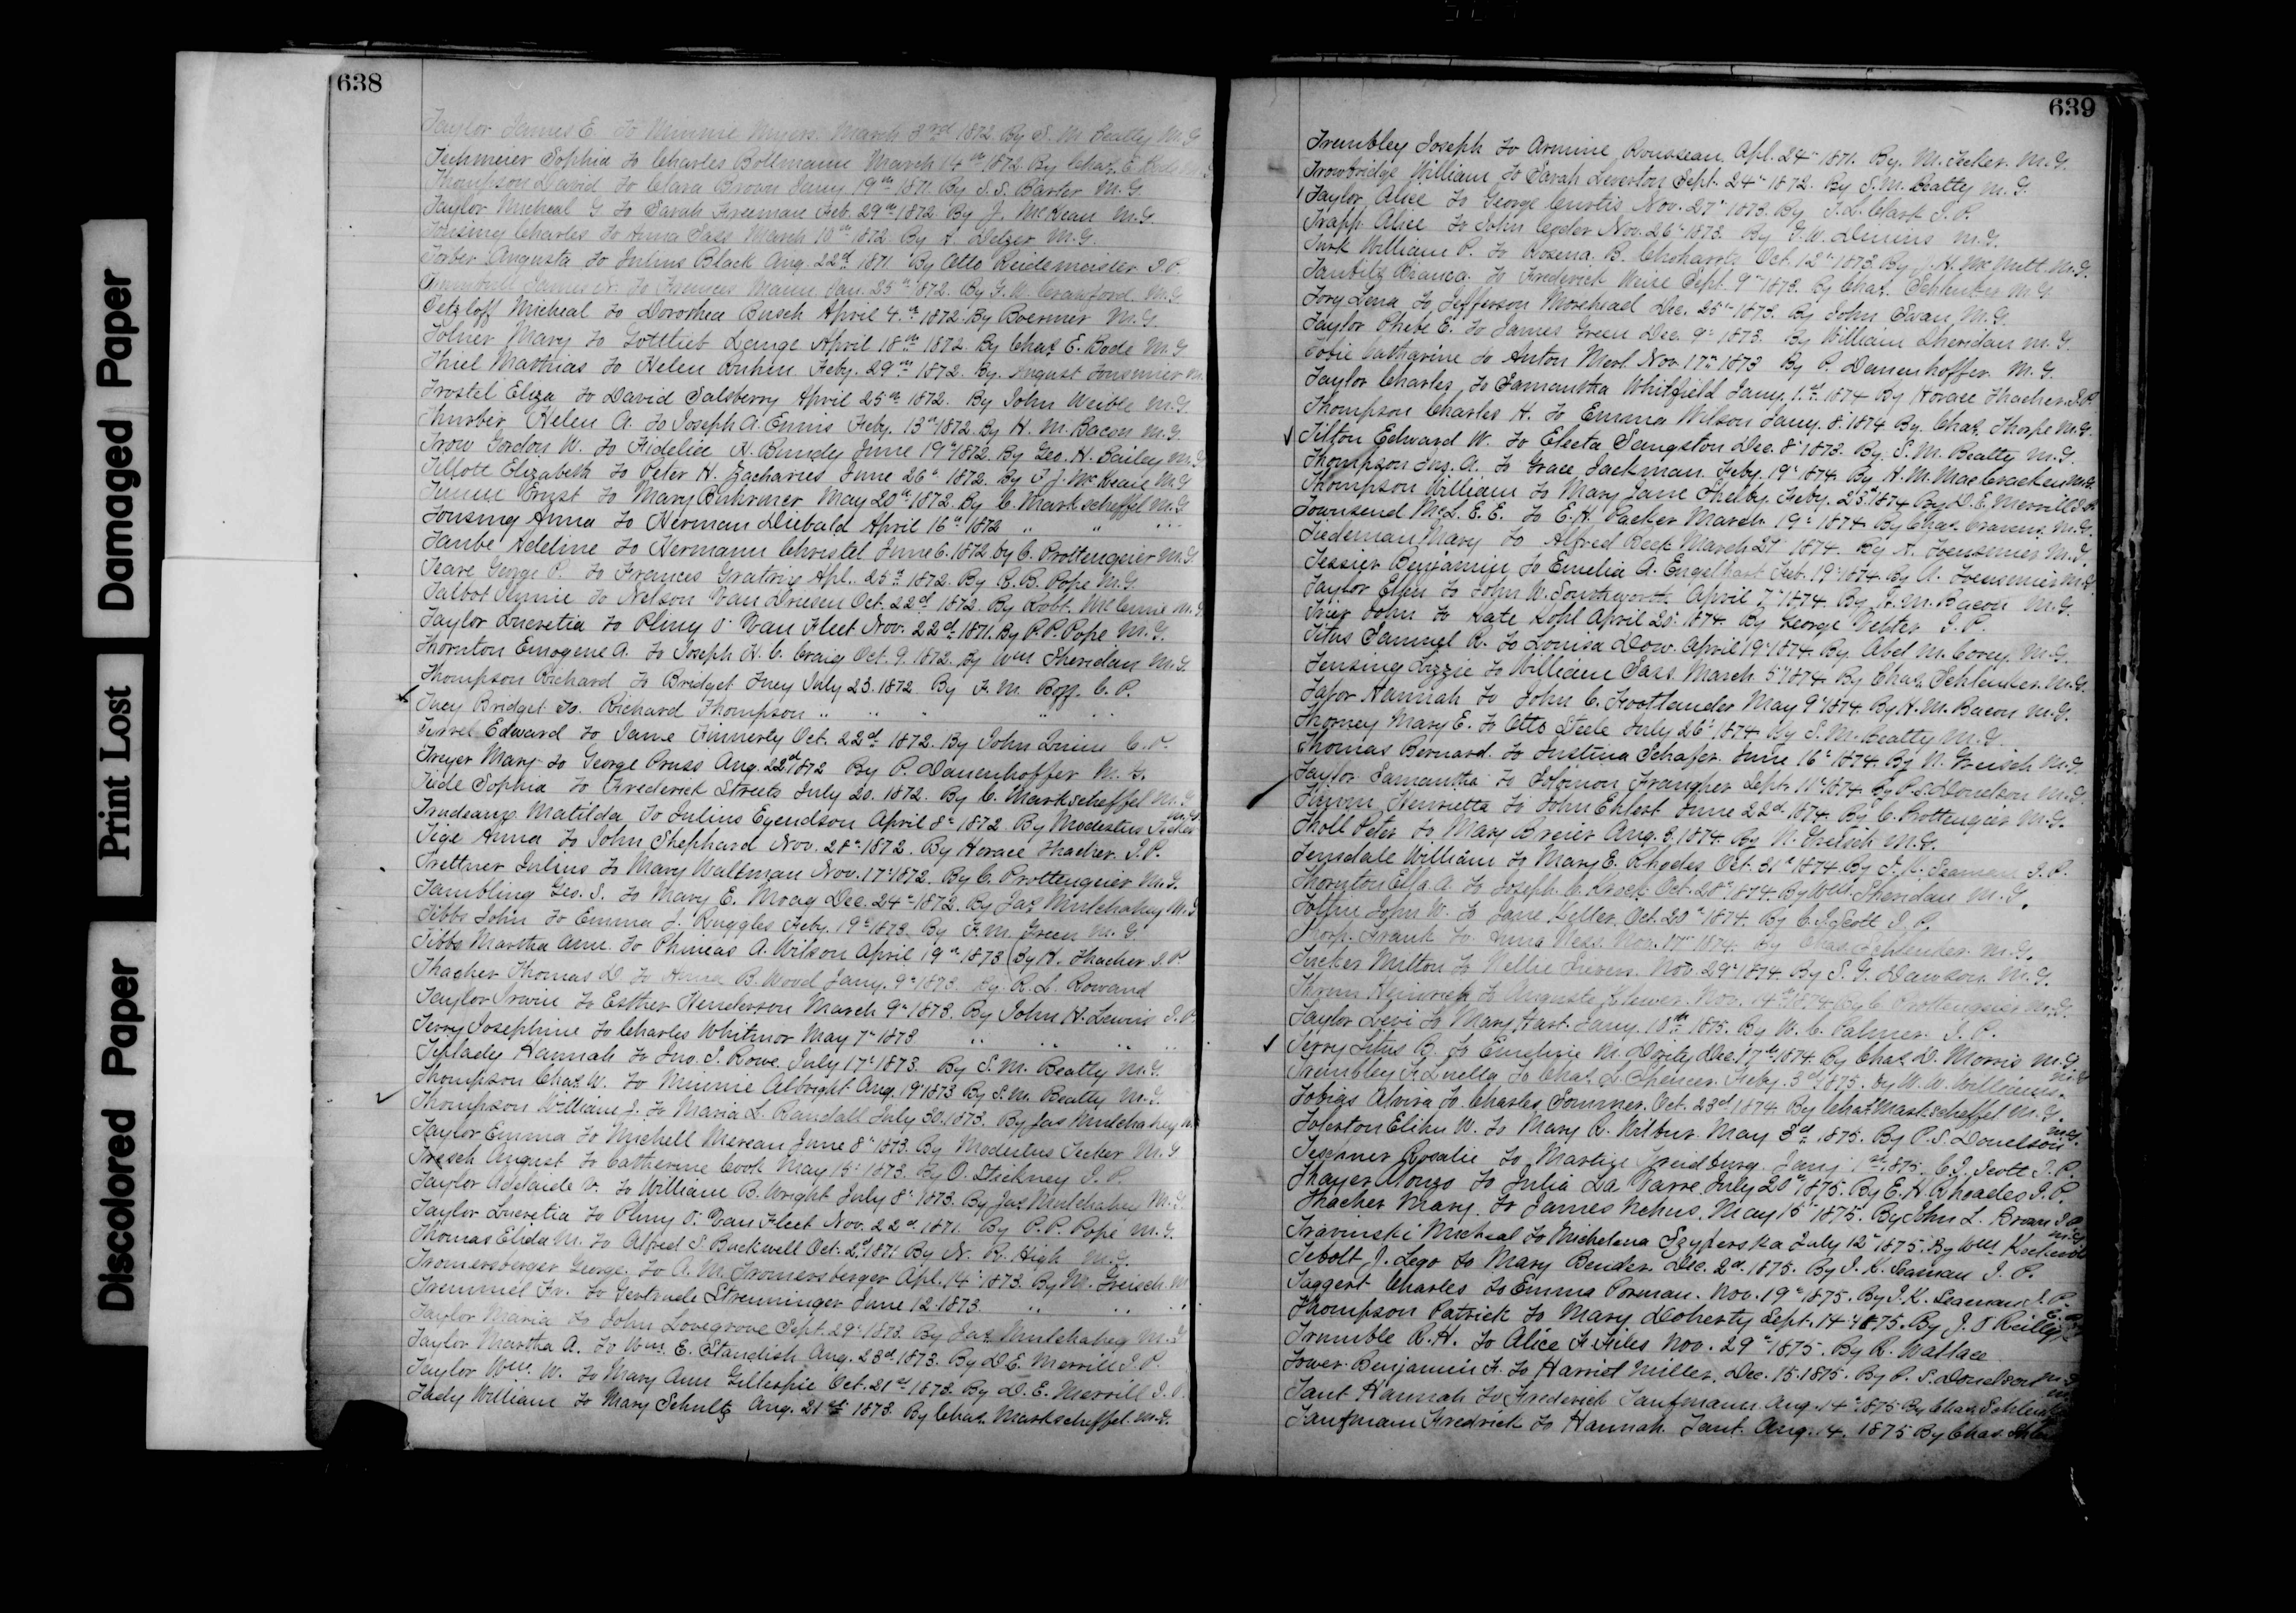 Damaged Paper
Print Lost
Discolored Paper
638
Taylor James E. to Minnie Myers March 3rd 1872 By S. M. Beatty M.G
Techmeier Sophia to Charles Bollmann March 14th 1872 By Chas. E. Bode M.G
Thompson David to Clara Brown Jany. 19th 1871. By S. S. Barter M.G
Taylor Micheal G. to Sarah Freeman Feb. 29th 1872 By J. McKean M.G.
Charles to Anna Sass March 10th 1872 By A. Detzer M.G.
Augusta to Julius Black Aug. 22d 1871. By Otto Reidemeister J.P.
James to Frances Mann Jan. 25th 1872. By G. W. Crawford M.G
Tetzloff Micheal to Dorothea Busch April 4th 1872. By Boermer M.G.
Tolner Mary to Gottlieb Lange April 18th 1872 By Chas E. Bode M.G
Thiel Matthias to Helen Feby. 29th 1872. By August
Trostel Eliza to David Salsberry April 25th 1872. By John Weible M.G.
Thurber Helen A. to Joseph A. Ennis Feby. 13th 1872. By H. M. Bacon M.G.
Trow Gordon W. to Fidelice H. Bundy June 19th 1872. By Geo. H. Bailey M.G
Tillott Elizabeth to Peter H. Zacharies June 26th 1872. By F. J. McKean M.G
Ernst to Mary Buhrmer May 20th 1872. By C. Markscheffel M.G
Tonsing Anna to Herman Diebald April 16th 1872 " " "
Taube Adeline to Hermann Christel June 6. 1872 by C. Prottengeier M.G.
Teare George P. to Frances Apl. 25th 1872. By R. B. Pope M.G
Talbot Jennie to Nelson Van Driesen Oct. 22d 1872. By Robt. McCune M.G
Taylor Lucretia to Pliny V. Van Fleet Nov. 22d 1871. By P. P. Pope M.G.
Thornton Emogene A. to Joseph H. C. Craig Oct. 9. 1872. By Wm Sheridan M.G
Thompson Richard to Bridget Tuey July 23. 1872 By F. M. Boff. C.P.
Tuey Bridget to Richard Thompson " " " " "
Edward to Jane Kinnerty Oct. 22d 1872. By John Quinn C.P.
Treyer Mary to George Pruss Aug. 22d 1872 By P. Danenhoffer M.G.
Tiede Sophia to Frederick Streets July 20. 1872. By C. Markscheffel M.G
Trudeaux Matilda to Julius Egendson April 8th 1872 By Modestus Tecker M.G
Tige Anna to John Shephard Nov. 28th 1872. By Horace Thacher J.P.
Trettner Julius to Mary Waltman Nov. 17th 1872. By C. Prottengeier M.G.
Tambling Geo. S. to Mary E. Moag Dec. 24th 1872. By Jas Mulchahey M.G
Tibbs John to Emma J. Ruggles Feby. 19th 1873. By F. M. Green M.G.
Tibbs Martha Ann to Phineas A. Wilson April 19th 1873 (By H. Thacher J.P.
Thacher Thomas D to Anna B. Wood Jany. 9th 1873. By R. L. Rowand
Taylor Irwin to Esther Henderson March 9th 1873. By John H. Lewis J.P
Terry Josephine to Charles Whitmor May 7th 1873 " " " "
Hannah to Jno. J. Rowe July 17th 1873. By S. M. Beatty M.G
Thompson Chas W. to Minnie Albright Aug. 19th 1873 By S. M. Beatty M.G
Thompson William J. to Maria L. Randall July 30. 1873. By Jas Mulchahey M.G
Taylor Emma to Michell Mereau June 8th 1873. By Modestus Tecker M.G
Tresch August to Catherine Cook May 15th 1873. By O. Stickney J.P.
Taylor Adelaide V. to William B. Wright July 8th 1873. By Jas Mulchahey M.G
Taylor Lucretia to Pliny V. Van Fleet Nov. 22d 1871. By P. P. Pope M.G
Thomas Elida M. to Alfred S. Buckwell Oct. 2d 1871 By N. R. High M.G.
Tromersberger George. to A. M. Tromersberger Apl. 14th 1873. By N. Greisch M
Tremmel Fr. to Gertrude Strenninger June 12. 1873. " " "
Taylor Maria to John Lovegrove Sept. 29th 1873. By Jas Mulchahey M.G
Taylor Martha A. to Wm. E. Standish Aug. 23d 1873. By D E. Merrill J.P.
Taylor Wm. W. to Mary Ann Gillespie Oct. 21st 1873. By D. E. Merrill J.P.
Tady William to Mary Schultz Aug. 21st 1873. By Chas. Markscheffel M.G.
639
Trembley Joseph to Armine Rousseau Apl. 24th 1871. By. M. Tecker. M.G.
Trowbridge William to Sarah Leverton Sept. 24th 1872. By S. M. Beatty M.G.
Taylor Alice to George Curtis Nov. 27th 1873. By J. L. Clark J.P.
Trapp Alice to John Nov. 26th 1873. By G. W. M.G.
Turk William P. to Rosena B. Oct. 12th 1873. By J. H. McNutt. M.G.
Bianca to Frederick Weise Sept. 9th 1873. By Chas. Schlenker M.G
Tory Lena to Jefferson Morehead Dec. 25th 1873. By John Swan M.G.
Taylor Phebe E. to James Green Dec. 9th 1873. By William Sheridan M.G.
Catharine to Anton Merl Nov. 17th 1873 By P. Danenhoffer M.G.
Taylor Charles to Samantha Whitfield Jany. 1st 1874 By Horace Thacher J.P.
Thompson Charles H. to Emma Wilson Jany. 8th 1874 By. Chas Thorpe M.G.
Tilton Edward W. to Electa Sangston Dec. 8th 1873. By S. M. Beatty M.G.
Thompson Jno. A. to Grace Jackman Feby. 19th 1874. By H. M. MacCracken M.G
Thompson William to Mary Jane Shelby Feby. 23d 1874 By D. E. Merrill J.P
Townsend McL. E. E. to E. H. Packer March 19th 1874 By Chas. Cravens M.G.
Tiedeman Mary to Alfred Reep March 27 1874. By A. Toensmeier M.G.
Tessier Benjamin to Emelia A. Engelhart Feb. 19th 1874 By A. Toensmeier M.G
Taylor Ellen to John W. Southworth April 7th 1874. By H. M. Bacon M.G.
John to Kate Kohl April 20th 1874. By George Webter J.P.
Titus Samuel R. to Louisa Dow. April 19th 1874. By Abel M. Corey. M.G.
Tensing Lizzie to William Sass. March 5th 1874. By Chas. Schlenker. M.G.
Tafor Hannah to John C. Trostlander May 9th 1874. By H. M. Bacon M.G.
Thorney Mary E. to Otto Steele July 26th 1874. By S. M. Beatty M.G.
Thomas Bernard. to Justina Schafer. June 16th 1874. By N. Greisch M.G.
Taylor Samantha to Solomon Frangher Sept. 11th 1874 By P. S. Donelson M.G.
Henrietta to John Ehlert June 22d 1874. By C. Prottengeier M.G.
Tholl Peter to Mary Breier Aug. 3. 1874. By N. Greisch M.G.
Tensdale William to Mary E. Rhodes Oct. 31st 1874 By J. K. Seaman J.P.
Thornton Ella A. to Joseph C. Oct. 28th 1874. By Wm. Sheridan M.G.
John W. to Jane Keller. Oct. 20th 1874. By C. J. Scott J.P.
Thorp Frank to Anna Ness. Nov. 17th 1874. By Chas. Schlenker. M.G.
Tucker Milton to Nellie Nov. 29th 1874. By S. G. Dawson M.G.
Thrun Heinrich to Auguste Nov. 14th 1874. By C. Prottengeier M.G.
Taylor Levi to Mary Hart Jany. 10th 1875. By W. C. Palmer. J.P.
Terry Titus B. to Emeline M. Dority Dec. 17th 1874. By Chas D. Morris M.G
Trembley F. Luella to Chas. L. Spencer. Feby. 3d 1875. by W. W. Williams. M.G
Tobias Alvira to Charles Sommer. Oct. 23d 1874. By Chas. Markscheffel M.G.
Tolerton Elihu W. to Mary R. Wilbur. May 3d 1875. By P. S. Donelson M.G.
Teschner Rosalie to Martin Freidburg. Jany. 1st 1875. C. J. Scott J.P.
Thayer Alonzo to Julia La Barre July 20th 1875. By E. H. Rhoades J.P.
Thacher Mary. to James Nehus. May 16th 1875. By John L. Bronson
Travinski Micheal to Michelena Szyperska July 12th 1875. By Wm
Tebolt J. Lego to Mary Bender Dec. 2d 1875. By J. K. Seaman J.P.
Taggert Charles to Emma Porman. Nov. 19th 1875. By J. K. Seaman J.P.
Thompson Patrick to Mary Doherty Sept. 14th 1875. By J. O'Reilly
Tremble R. H. to Alice F. Files Nov. 29th 1875. By R. Wallace
Tower Benjamin F. to Harriet Miller. Dec. 15. 1875. By P. S. Donelson M.G
Taut Hannah to Frederick Taufmann Aug. 14th 1875 By Chas Schlenker
Taufmann Fredrick to Hannah Taut. Aug. 14. 1875 By Chas.